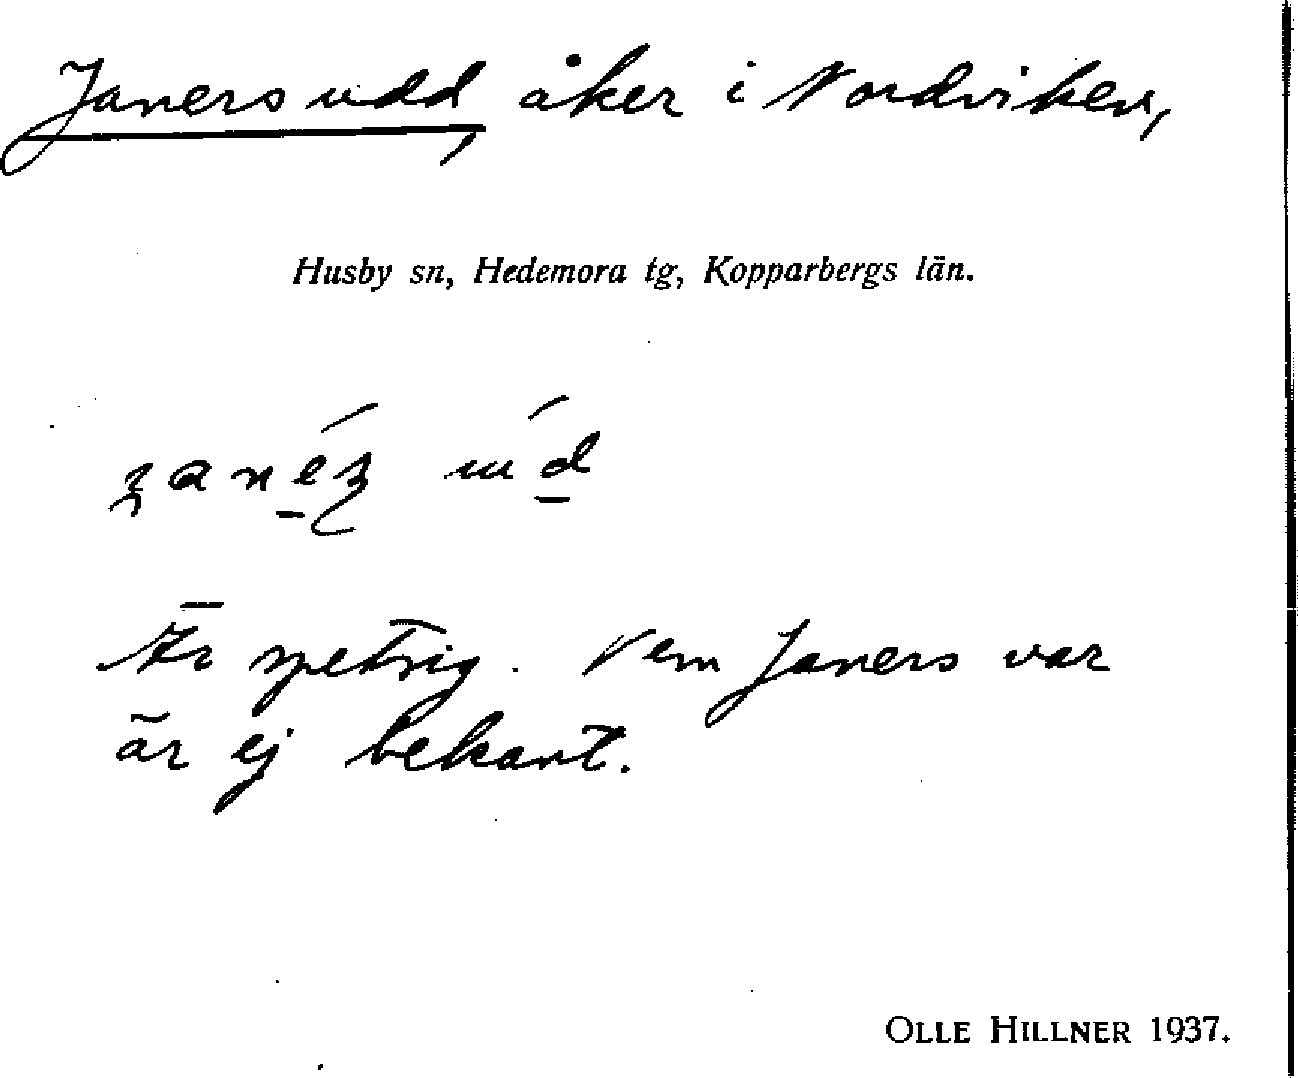 Janers udd, åker i Nordviken,
Husby sn, Hedemora tg, Kopparbergs län.
Är spetsig. Vem Janers var
är ej bekant.
OLLE HILLNER 1937.